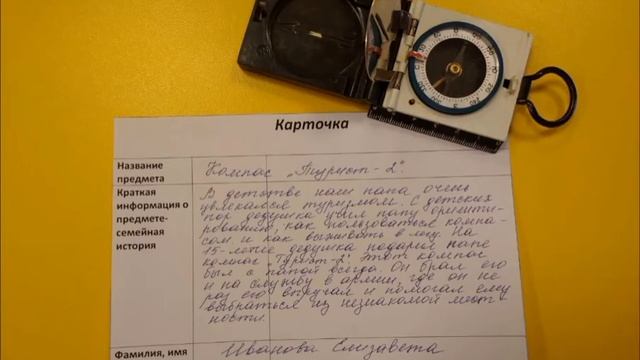 Карточка
Название предмета
Компас „Турист-2".
Краткая информация о предмете-семейная история
В детстве наш папа очень
увлекался туризмом. С детских
пор дедушка учил папу ориенти-
рованию, как пользоваться компа-
сом и как выживать в лесу. На
15-летие дедушка подарил папе
компас „Турист-2". Этот компас
был с папой всегда. Он брал его
и на службу в армии, где он не
раз его выручал и помогал ему
выбраться из незнакомой мест-
ности.
Фамилия, имя
Иванова Елизавета